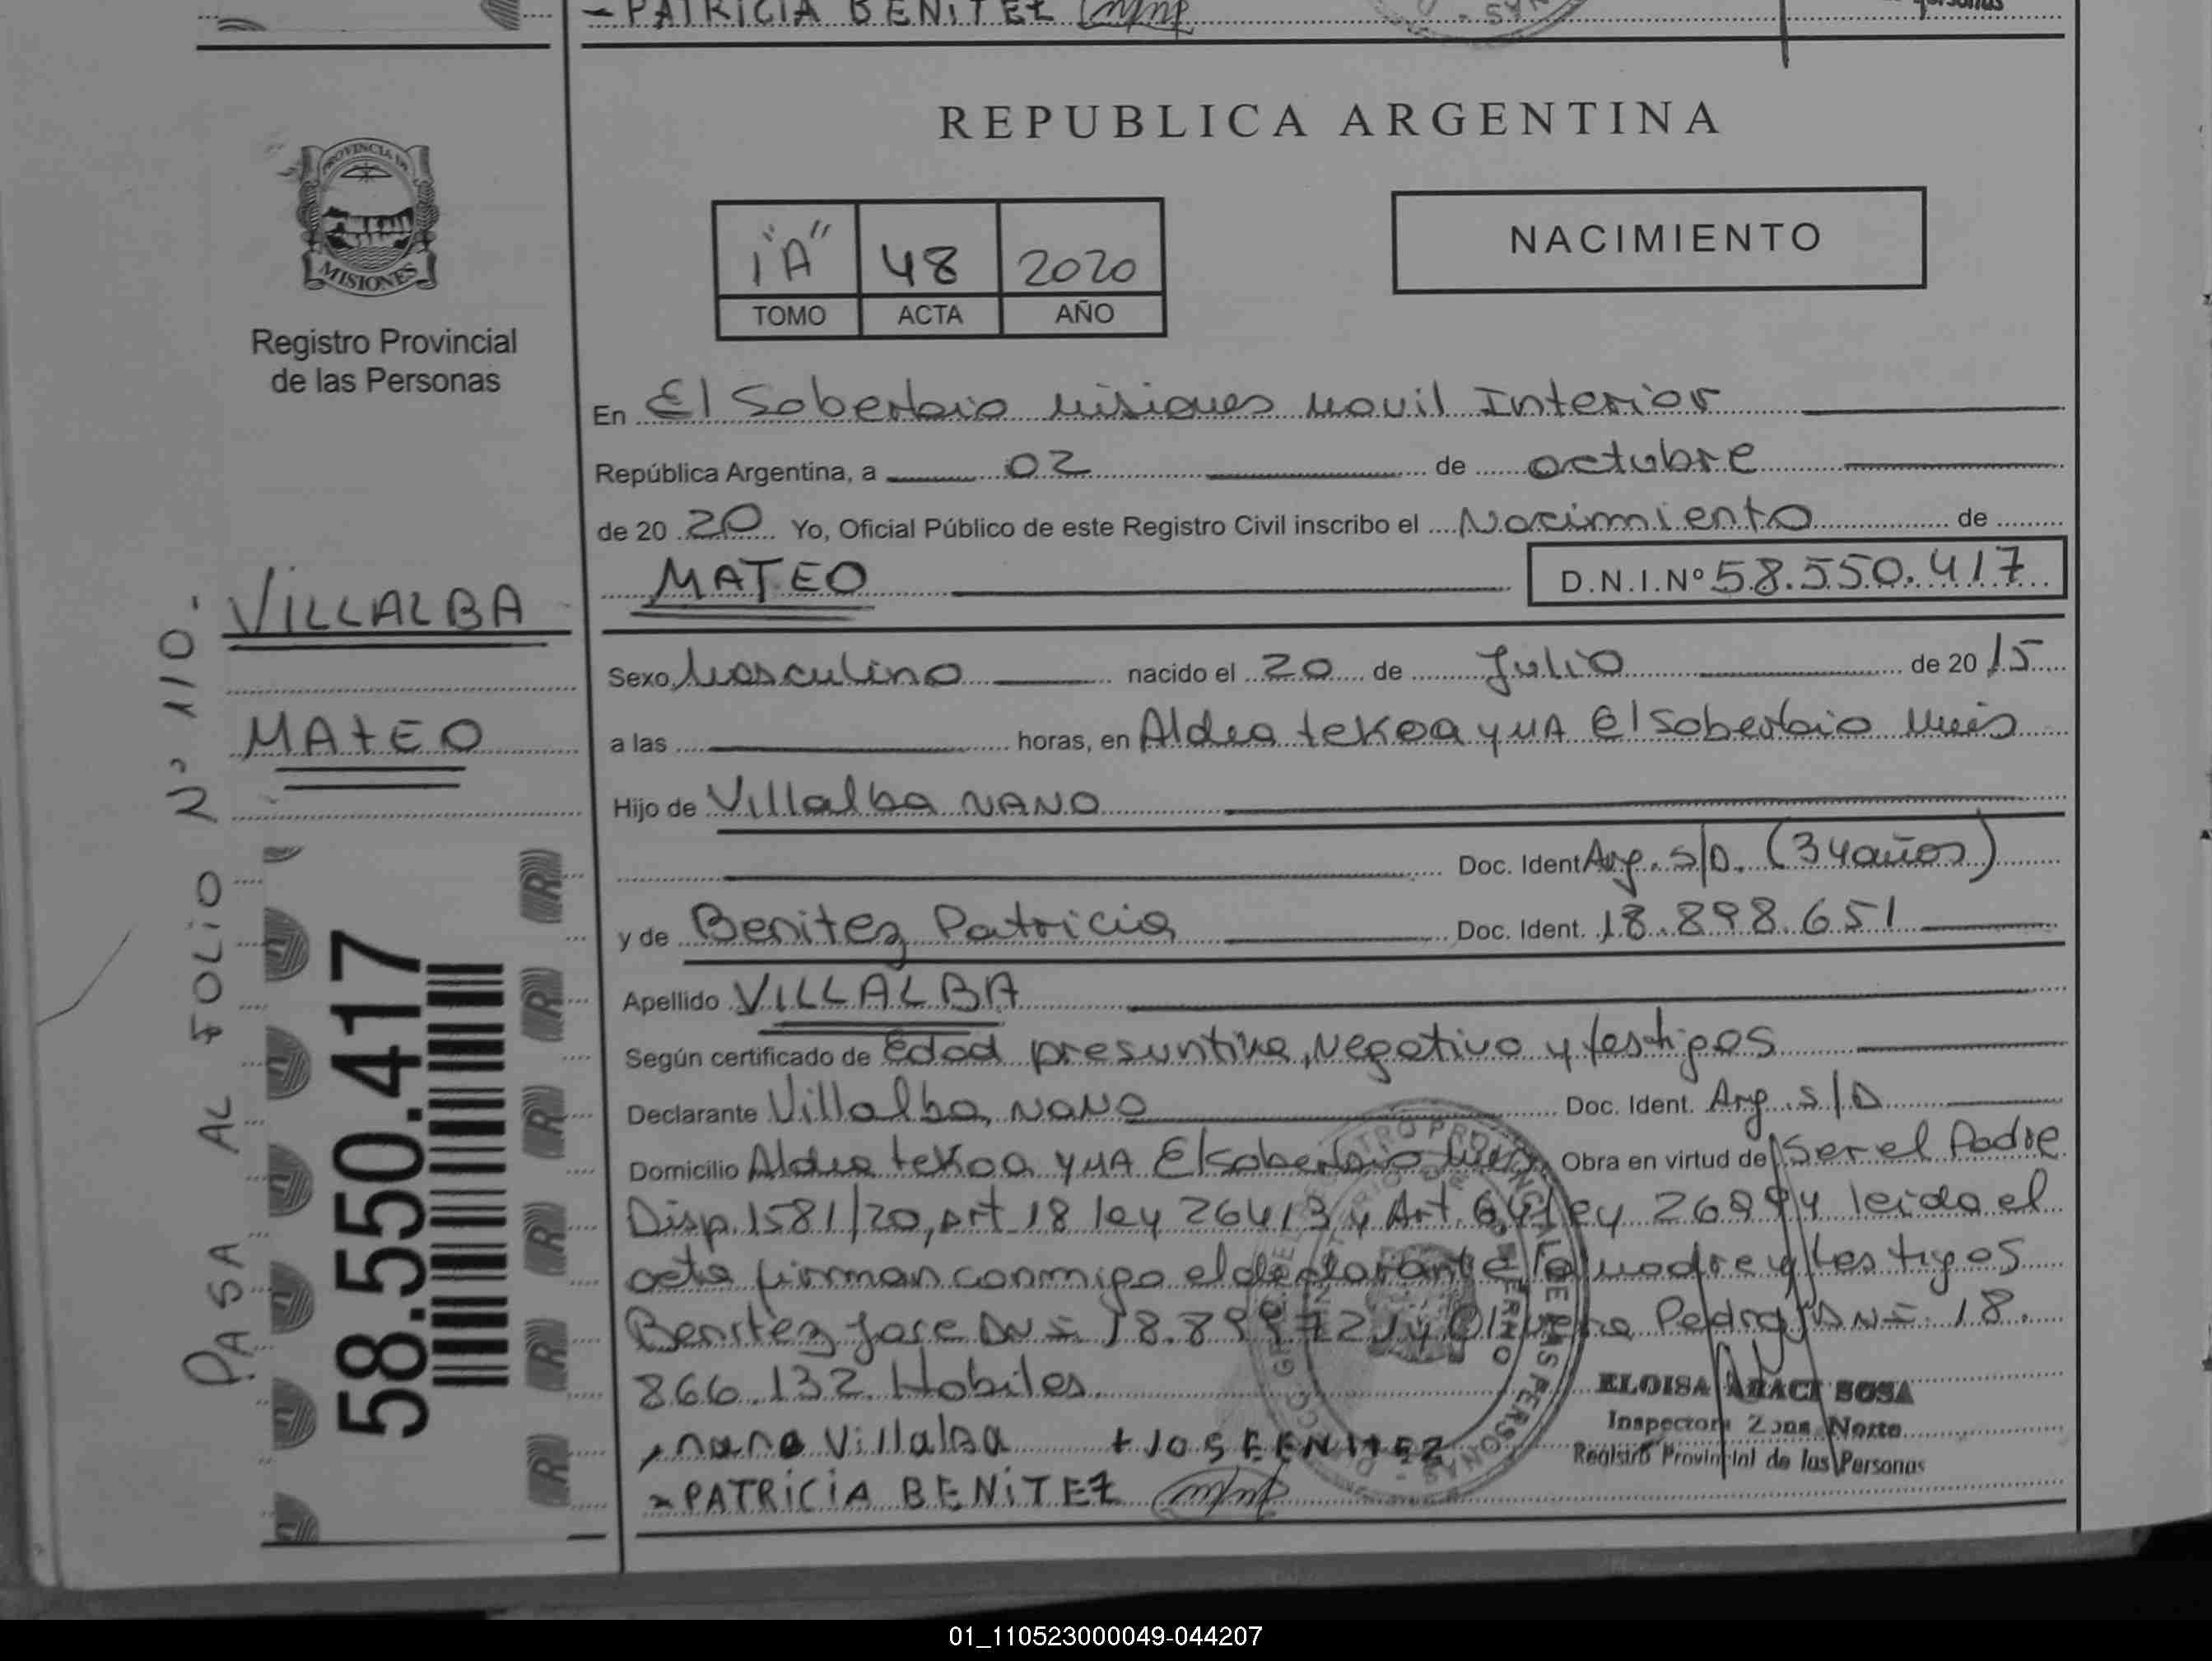 - PATRICIA BENITEZ
REPUBLICA ARGENTINA
PROVINCIA DE
MISIONES
Registro Provincial
de las Personas
1"A" 48 2020
TOMO ACTA AÑO
NACIMIENTO
En El Soberbio Misiones Movil Interior
República Argentina, a 02 de octubre
de 20 20 Yo, Oficial Público de este Registro Civil inscribo el Nacimiento de
MATEO D.N.I.Nº 58.550.417
VILLALBA
MATEO
PASA AL FOLIO Nº 110.-
58.550.417
Sexo Masculino nacido el 20 de Julio de 20 15
a las horas, en Aldea tekoa yMA El Soberbio Mnes
Hijo de Villalba NANO
Doc. Ident Arg. S/D. (34 años)
y de Benitez Patricia Doc. Ident. 18.898.651
Apellido VILLALBA
Según certificado de Edad presuntiva, Negativo y testigos
Declarante Villalba, NANO Doc. Ident. Arg. S/D
Domicilio Aldea teKoa YMA El soberbio Obra en virtud de Ser el Padre
Disp. 1581/20, Art 18 ley 26413 y Art. 64 ley 26994 leida el
acta firman conmigo el declarante la madre y testigos
Benitez Jose DNI 18. y Pedro DNI 18.
866.132 Habiles
nano Villalba + JOSE ENITEZ
- PATRICIA BENITEZ
ELOISA ARACI SOSA
Inspectora Zona Norte
Registro Provincial de las Personas
01_110523000049-044207